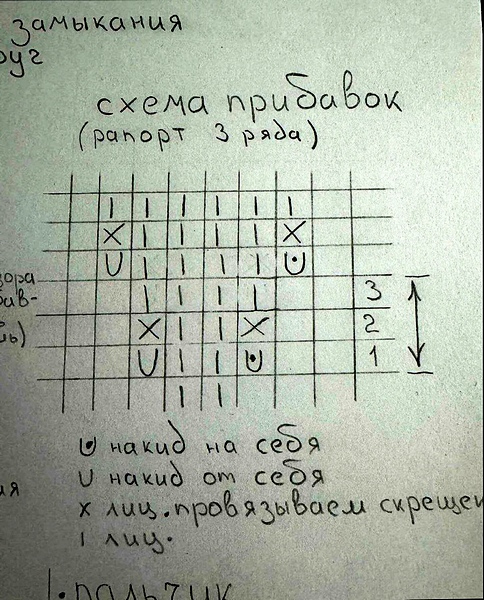 замыкания
руг
схема прибавок
(рапорт 3 ряда)
| | | | | |
X | | | | X
U | | | | U
зора | | | | 3
бав- X | | X 2
ь) U | | U 1
| |
U накид на себя
U накид от себя
ия х лиц. провязываем скрещен
| лиц.
1. пальчик